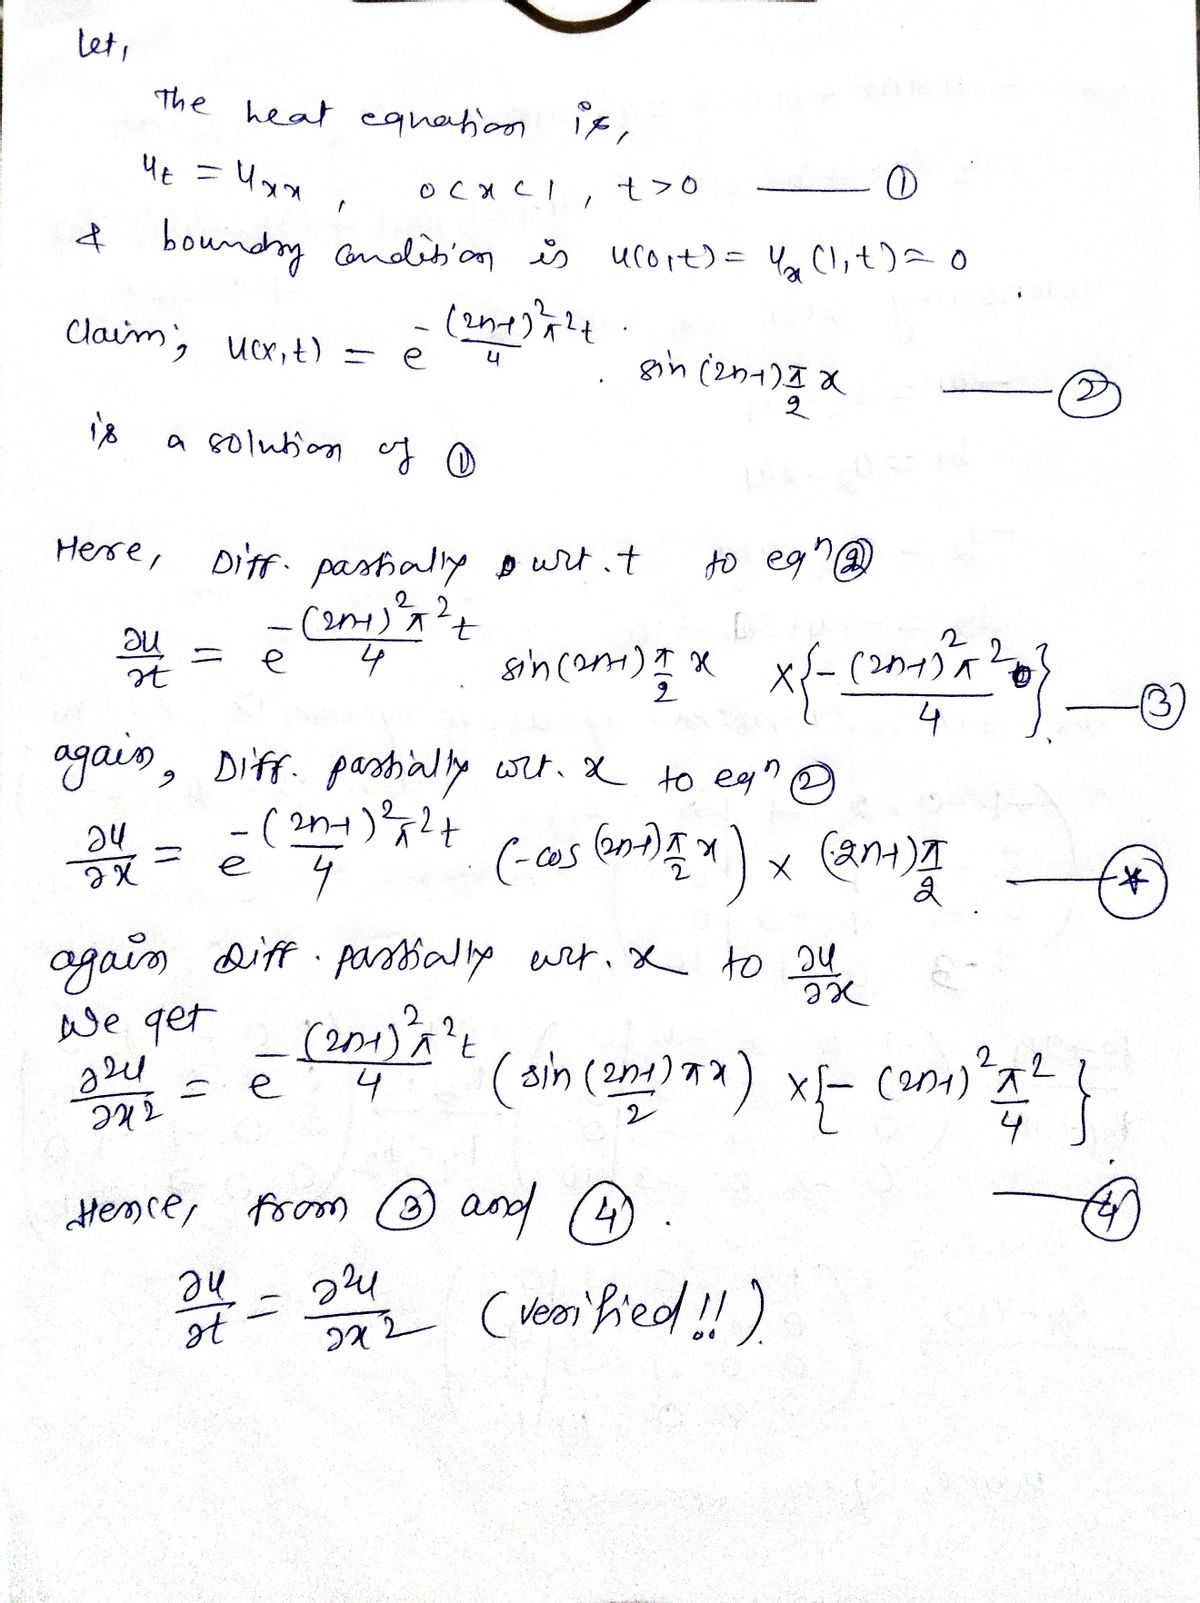 Let,
The heat equation is,
u_t = u_xx , 0 < x < 1 , t > 0 —— ①
& boundry condition is u(0,t) = u_x (1,t) = 0 .
Claim; u(x,t) = e^{-(2n-1)²π²t/4} . sin (2n-1) π/2 x —— ②
is a solution of ①
Here, Diff. partially wrt. t to eqⁿ ②
∂u/∂t = e^{-(2n-1)²π²t/4} . sin (2n-1) π/2 x × {- (2n-1)²π²/4} . —— ③
again, Diff. partially wrt. x to eqⁿ ②
∂u/∂x = e^{-(2n-1)²π²t/4} (-cos (2n-1) π/2 x) × (2n-1) π/2 . —— (*)
again Diff. partially wrt. x to ∂u/∂x
We get
∂²u/∂x² = e^{-(2n-1)²π²t/4} (sin (2n-1)/2 πx) × {- (2n-1)² π²/4} .
Hence, from ③ and ④ . —— ④
∂u/∂t = ∂²u/∂x² (verified !!).